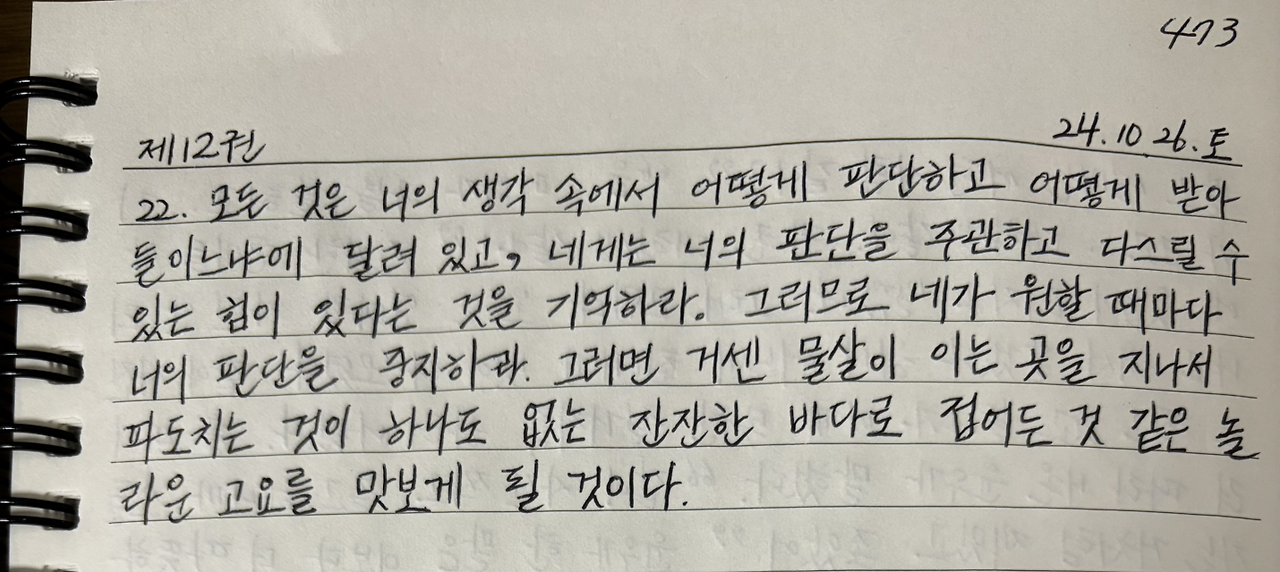 473
제12권 24.10.26.토
22. 모든 것은 너의 생각 속에서 어떻게 판단하고 어떻게 받아
들이느냐에 달려 있고, 네게는 너의 판단을 주관하고 다스릴 수
있는 힘이 있다는 것을 기억하라. 그러므로 네가 원할 때마다
너의 판단을 중지하라. 그러면 거센 물살이 이는 곳을 지나서
파도치는 것이 하나도 없는 잔잔한 바다로 접어든 것 같은 놀
라운 고요를 맛보게 될 것이다.